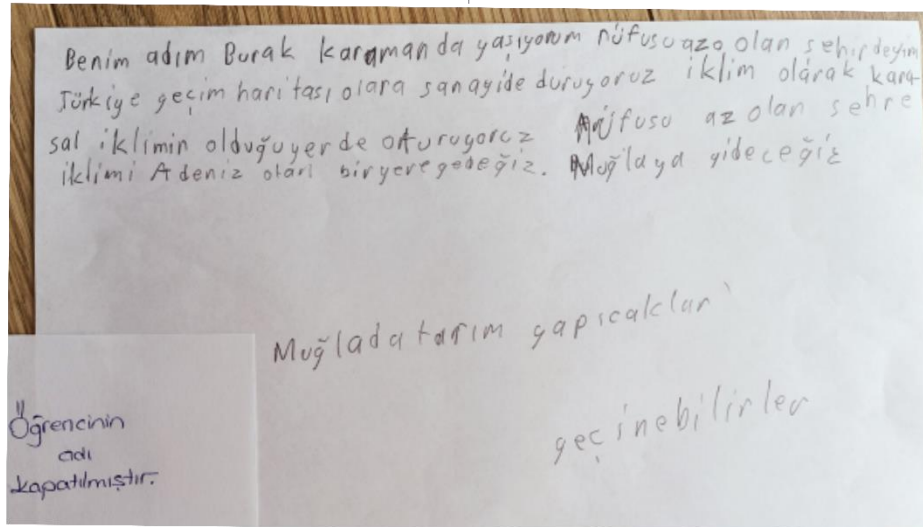 Benim adım Burak karamanda yaşıyorum nüfusu azo olan şehirdeyim
Türkiye geçim haritası olara sanayide duruyoruz iklim olarak kara-
sal iklimin olduğu yerde oturuyoruz Nüfusu az olan şehre
iklimi Adeniz olan biryere gedeğiz. Muğlaya gideceğiz
Muğlada tarım yapıcaklar
geçinebilirler
Öğrencinin
adı
kapatılmıştır.